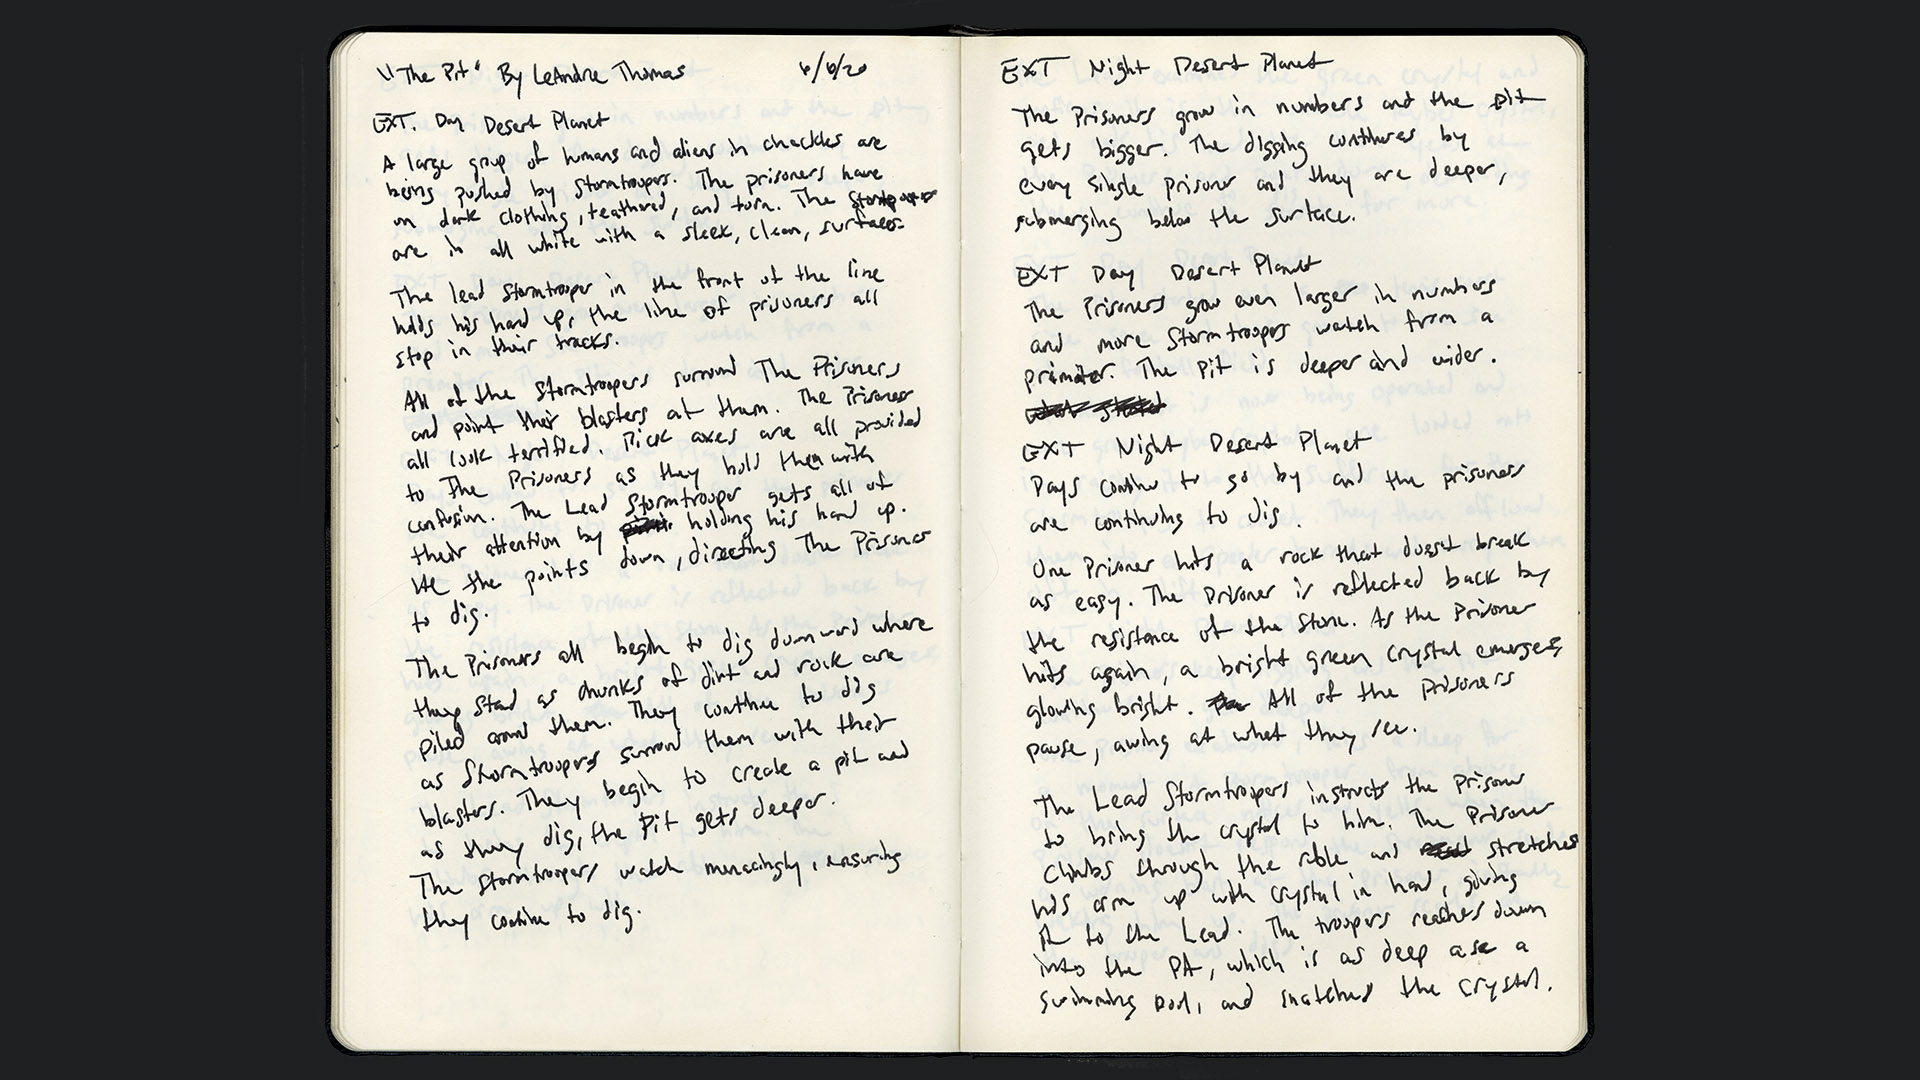 "The Pit" By LeAndre Thomas 6/6/20
EXT. Day Desert Planet
A large group of humans and aliens in chackles are
being pushed by Stormtroopers. The prisoners have
on dark clothing, teathered, and torn. The
are in all white with a sleek, clean, surfaces.
The lead Stormtrooper in the front of the line
holds his hand up, the line of prisoners all
stop in their tracks.
All of the Stormtroopers surround The Prisoners
and point their blasters at them. The Prisoners
all look terrified. Pick axes are all provided
to The Prisoners as they hold them with
confusion. The Lead Stormtrooper gets all of
their attention by holding his hand up.
He the points down, directing The Prisoners
to dig.
The Prisoners all begin to dig downward where
they stand as chunks of dirt and rock are
piled around them. They continue to dig
as Stormtroopers surround them with their
blasters. They begin to create a pit and
as they dig, the Pit gets deeper.
The Stormtroopers watch menacingly, ensuring
they continue to dig.
EXT Night Desert Planet
The Prisoners grow in numbers and the pit
gets bigger. The digging continues by
every single prisoner and they are deeper,
submerging below the surface.
EXT Day Desert Planet
The Prisoners grow even larger in numbers
and more Stormtroopers watch from a
primiter. The Pit is deeper and wider.
EXT Night Desert Planet
Days continue to go by and the prisoners
are continuing to dig.
One Prisoner hits a rock that doesn't break
as easy. The Prisoner is reflected back by
the resistance of the stone. As the Prisoner
hits again, a bright green crystal emerges,
glowing bright. All of the Prisoners
pause, awing at what they see.
The Lead Stormtroopers instructs the Prisoner
to bring the crystal to him. The Prisoner
climbs through the rible and stretches
his arm up with crystal in hand, giving
it to the Lead. The troopers reaches down
into the Pit, which is as deep as a
swimming pool, and snatches the crystal.